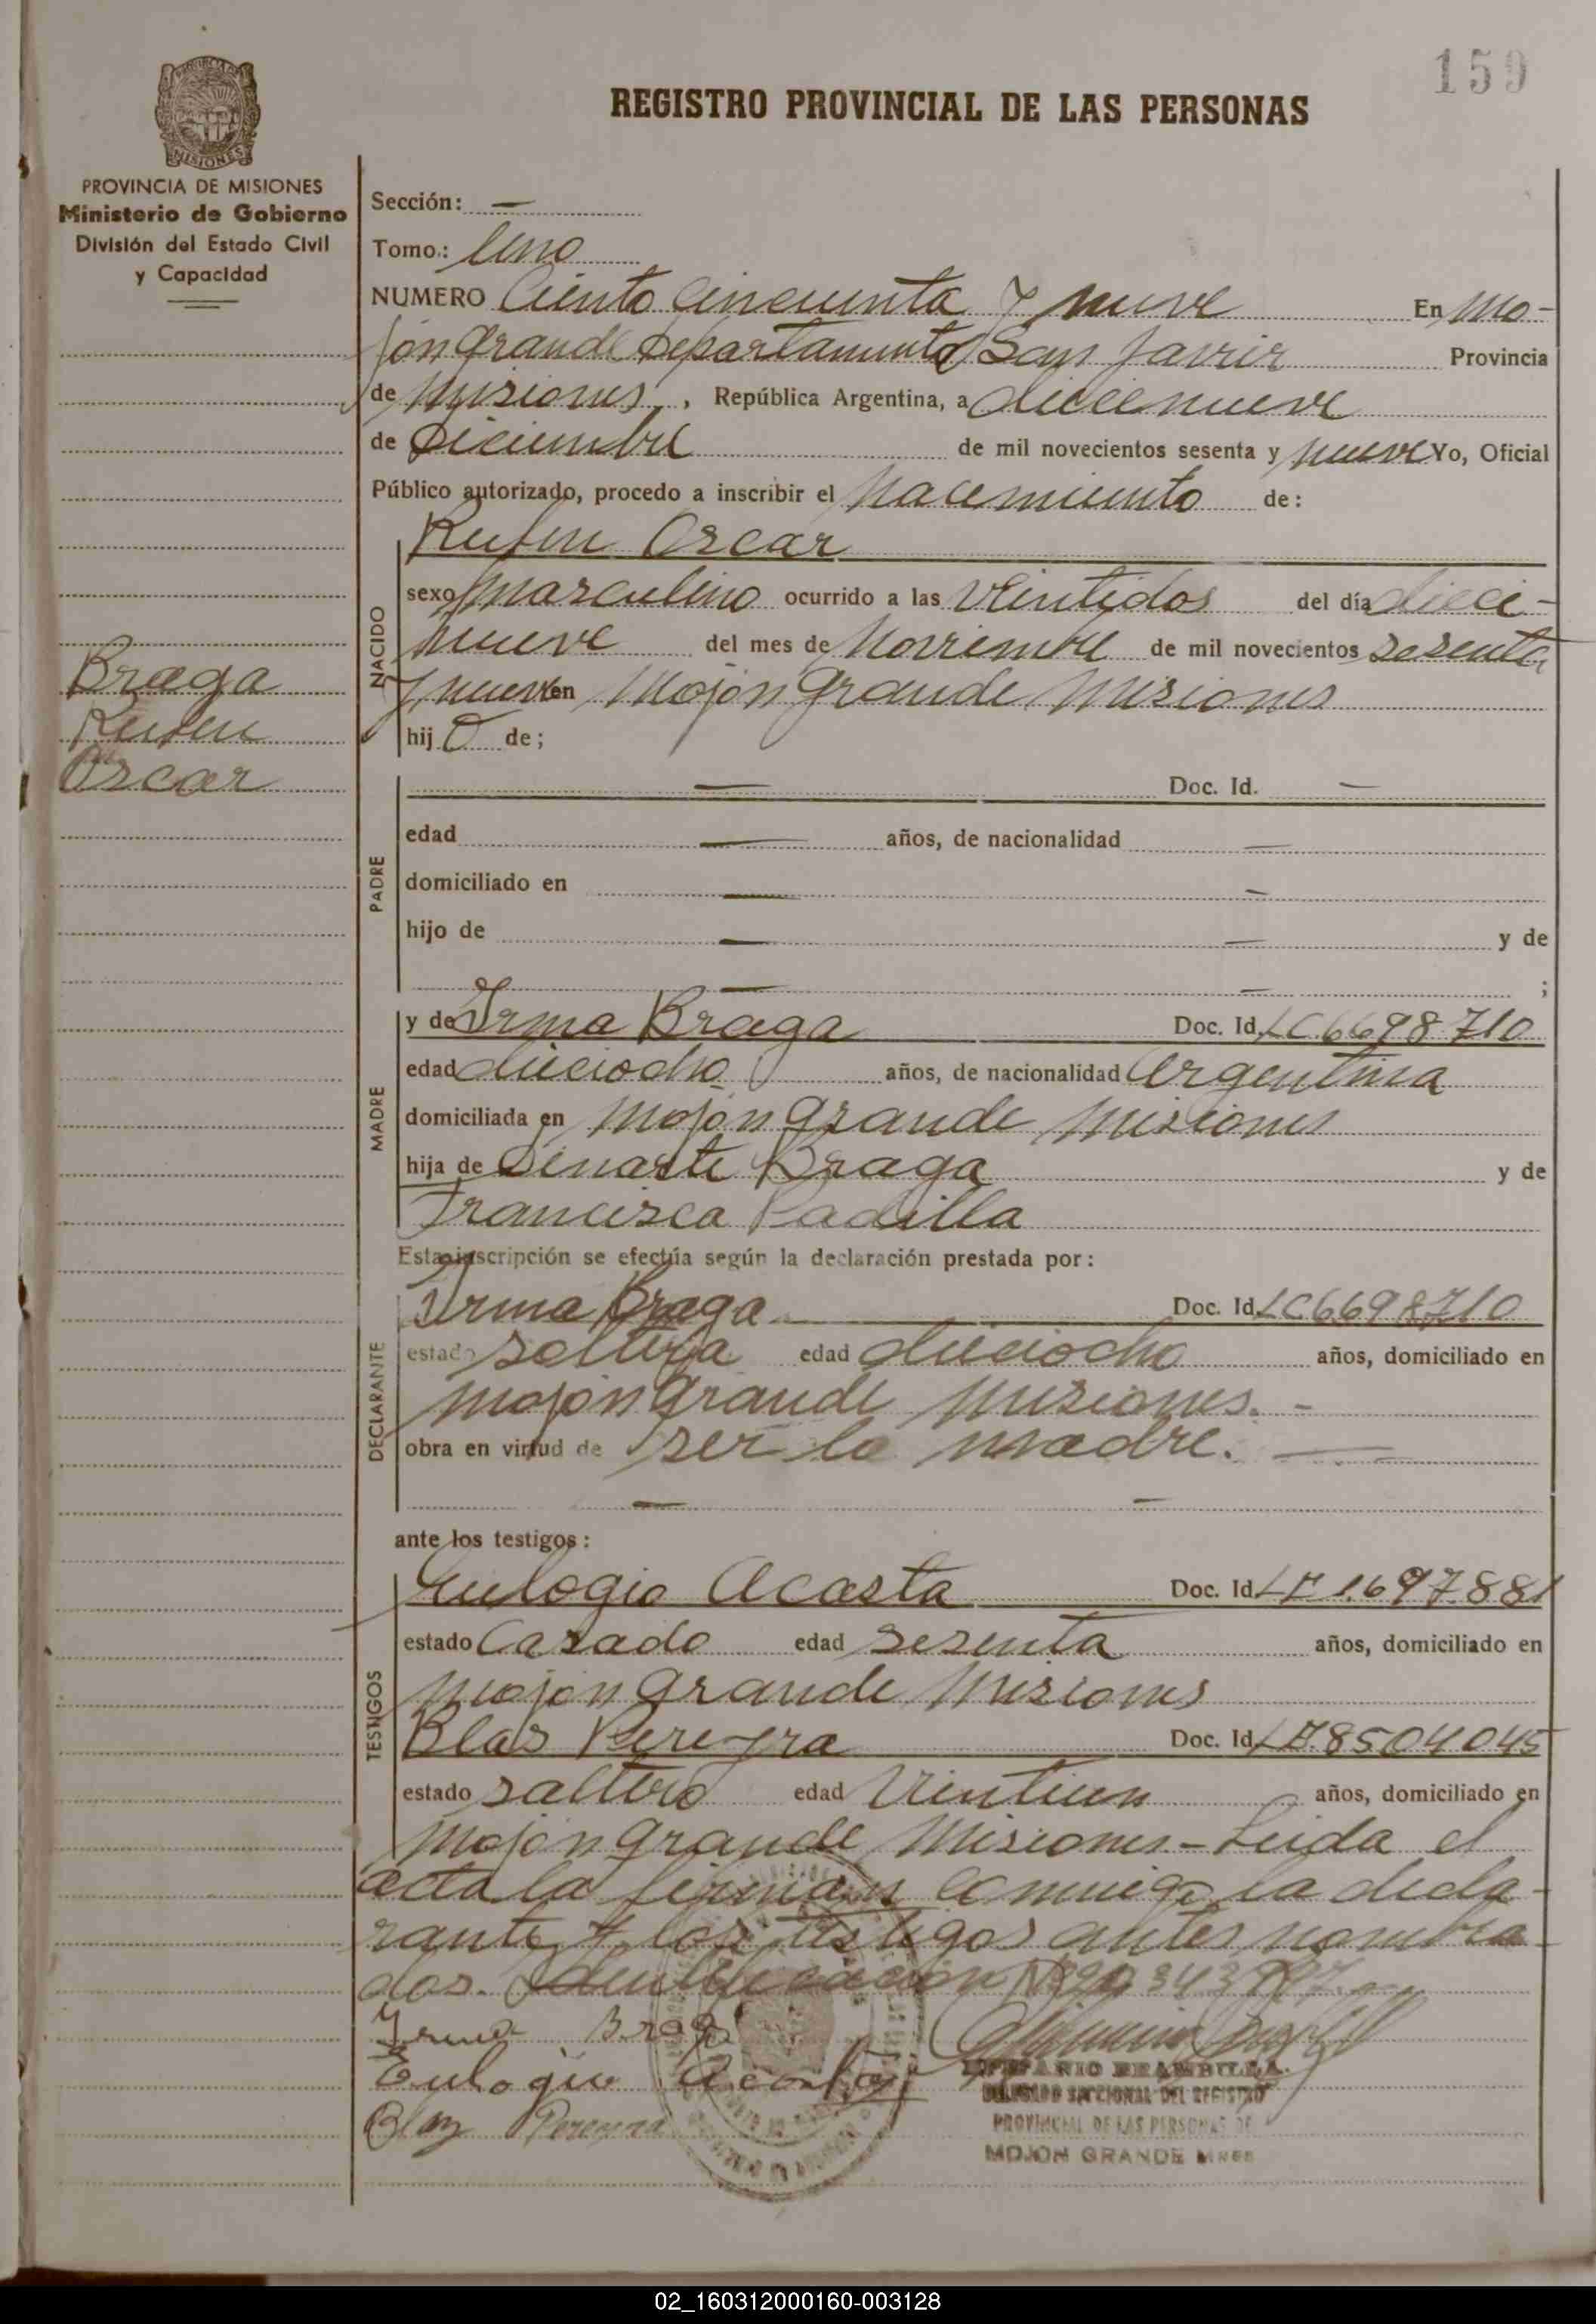 159
REGISTRO PROVINCIAL DE LAS PERSONAS
PROVINCIA DE MISIONES
Ministerio de Gobierno
División del Estado Civil
y Capacidad
Sección: —
Tomo.: Uno
NUMERO Ciento Cincuenta y nueve En Mo-
jón grande Departamento San Javier Provincia
de Misiones, República Argentina, a diecinueve
de Diciembre de mil novecientos sesenta y nueve Yo, Oficial
Público autorizado, procedo a inscribir el Nacimiento de:
Ruben Oscar
NACIDO
sexo masculino ocurrido a las Veintidos del día dieci-
nueve del mes de Noviembre de mil novecientos sesenta
y nueve en Mojón grande Misiones
hijo de;
Braga
Ruben
Oscar
PADRE
— Doc. Id. —
edad — años, de nacionalidad —
domiciliado en — —
hijo de — — y de
— — ;
MADRE
y de Irma Braga Doc. Id. LC 6698710
edad dieciocho años, de nacionalidad Argentina
domiciliada en Mojón grande Misiones
hija de Braga y de
Francisca Padilla
Esta inscripción se efectúa según la declaración prestada por:
DECLARANTE
Irma Braga Doc. Id. LC 6698710
estado soltera edad dieciocho años, domiciliado en
Mojón grande Misiones. -
obra en virtud de ser la madre. —
— —
ante los testigos:
TESTIGOS
Eulogio Acosta Doc. Id. LE 1.697.881
estado Casado edad sesenta años, domiciliado en
Mojón grande Misiones
Blas Pereyra Doc. Id. LE. 8504045
estado soltero edad Veintiun años, domiciliado en
Mojón grande Misiones - Leida el
acta la firman conmigo la decla-
rante y los testigos antes nombra-
dos. Identificación Nº
Irma Braga
Eulogio Acosta
Blas Pereyra
BRAMBILLA.
DELEGADO SECCIONAL DEL REGISTRO
PROVINCIAL DE LAS PERSONAS DE
MOJON GRANDE Mnes
02_160312000160-003128